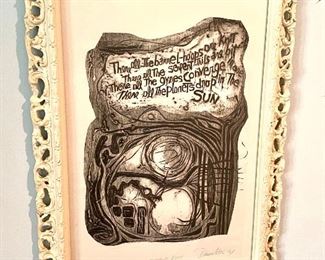 There all The barrel-hoops are knit
There all The serpent tails are bit
There all the gyres converge in
There all The planets drop in The
SUN